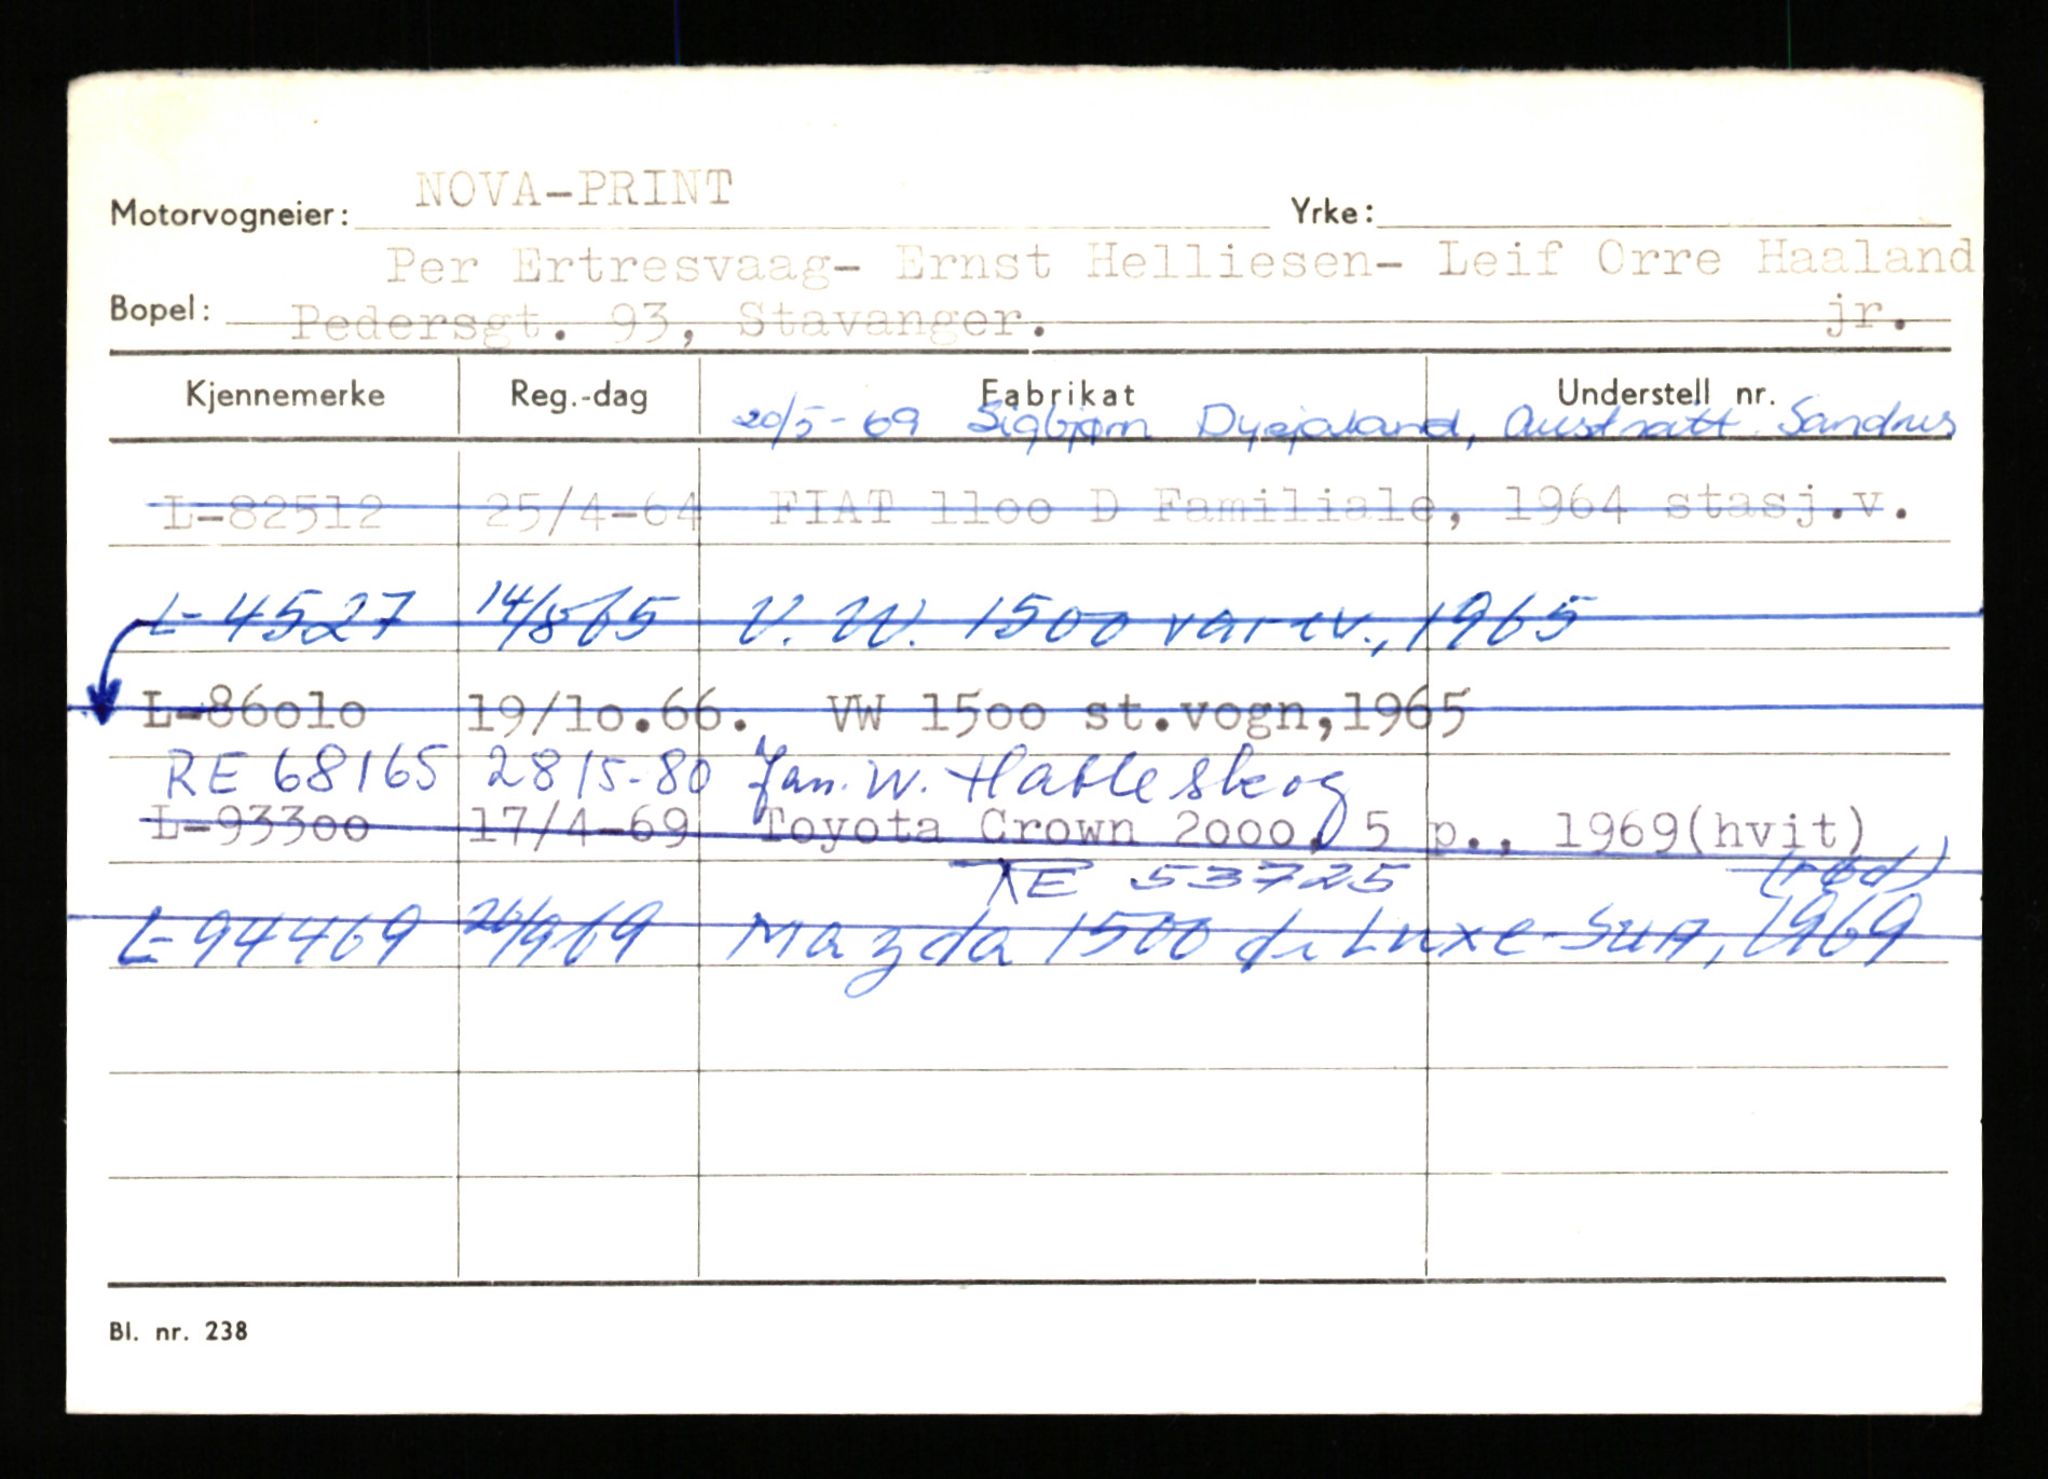 NOVA-PRINT
Motorvogneier: Yrke:
Per Ertresvaag- Ernst Helliesen- Leif Orre Haaland
Bopel: Pedersgt. 93, Stavanger. jr.
Kjennemerke Reg.-dag Fabrikat Understell nr.
20/5-69 Sigbjørn Dysjaland, Austratt Sandnes
L-82512 25/4-64 FIAT 11oo D Familiale, 1964 stasj.v.
L-4527 14/8 65 V.W. 1500 varev., 1965
L-86olo 19/lo.66. VW 15oo st.vogn,1965
RE 68165 28/5-80 Jan. W. Hatleskog
L-933oo 17/4-69 Toyota Crown 2000, 5 p., 1969(hvit)
53725 (rød)
L-94469 26/9 69 Mazda 1500 de Luxe-SUA, 1969
Bl. nr. 238